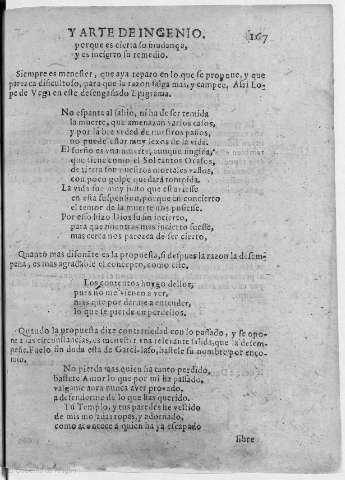 Y ARTE DE INGENIO. 167
porque es cierta su mudança,
y es incierto su remedio.
Siempre es menester, que aya reparo en lo que se propone, y que
parezca dificultoso, para que la razon salga mas, y campee, Assi Lo-
pe de Vega en este desengañado Epigrama.
No espanta al sabio, ni ha de ser temida
la muerte, que amenazan varios casos,
y por la brevedad de nuestros passos,
no puede estar muy lexos de la vida.
El sueño es una muerte, aunque fingida,
que tiene como el Sol tantos Ocasos,
de tierra son nuestros mortales vasos,
con poco golpe quedará rompida.
La vida fue muy justo que estuviesse
en esta suspension, porque un concierto
el temor de la muerte nos pusiesse.
Por esso hizo Dios su fin incierto,
para que mientras mas incierto fuesse,
mas cerca nos parezca de ser cierto.
Quanto mas disonante es la propuesta, si despues la razon la desem-
peña, es mas agradable el concepto, como este.
Los contentos huygo dellos,
pues no me vienen a ver,
mas que por darme a entender,
lo que se pierde en perdellos.
Quando la propuesta dize contrariedad con lo passado, y se opo-
ne a las circunstancias, es menester una relevante salida, que la desem-
peñe. Fuelo sin duda esta de Garci-lasso, bastele su nombre por enco-
mio.
No pierda mas quien ha tanto perdido,
bastete Amor lo que por mi ha passado,
valgame aora nunca aver provado,
a defenderme de lo que has querido.
Tu Templo, y tus paredes he vestido
de mis mojadas ropas, y adornado,
como acontece a quien ha ya escapado
libre